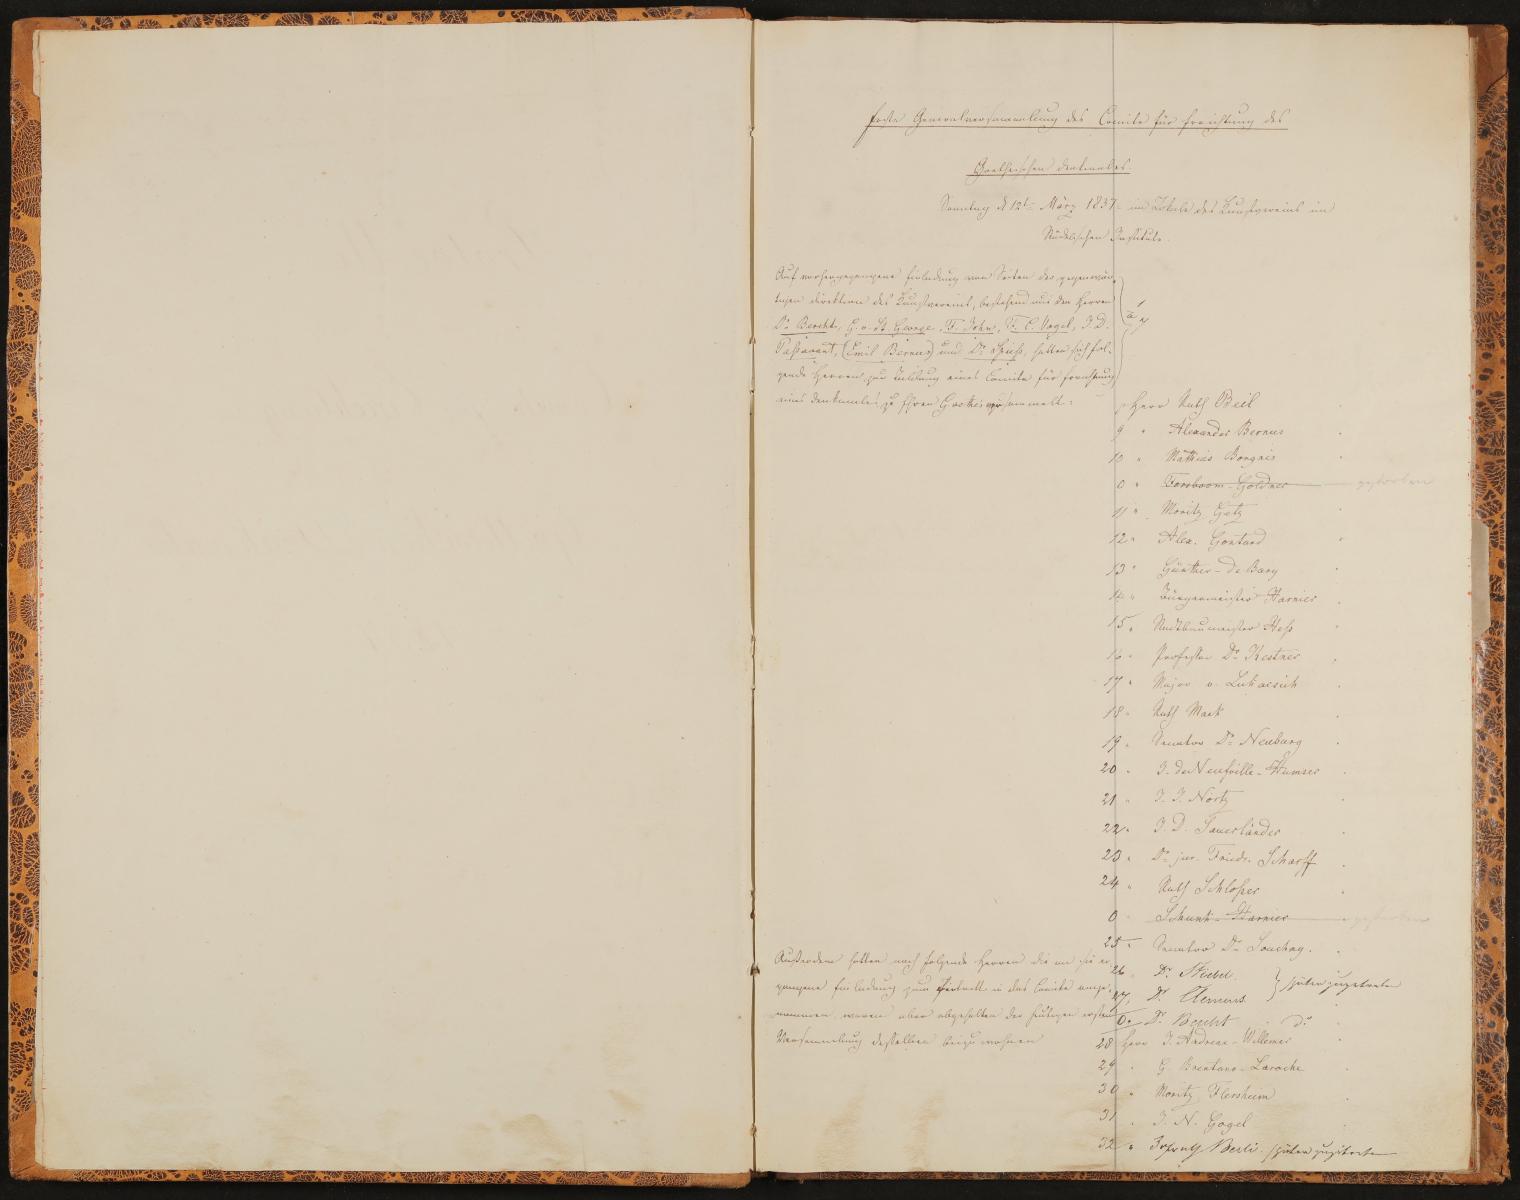 Erste Generalversammlung des Comite für Errichtung des
Goetheschen Denkmales.
Sonntag d 12t März 1837 im Lokale des Kunstvereins im
Städelschen Institute.
Auf vorhergegangene Einladung von Seiten der gegenwär-
tigen Direktion des Kunstvereins, bestehend aus den Herren
Dr Bercht, G. v. St. George, F. John, F. C. Vogel, J. D.
Passavant, (Emil Bernus) und Dr Spieß, hatten sich fol-
gende Herren zur Bildung eines Comite für Errichtung
eines Denkmales zu Ehren Goethes versammelt:
Herr Rath Beil
9 " Alexander Bernus
10 " Matthias Borgnis
0 " Forsboom-Goldner gestorben
11 " Moritz Getz
12 " Alex. Gontard
13 " Günther-de Bary
14 " Bürgermeister Harnier
15 " Stadtbaumeister Heß
16 " Professor Dr Kestner
17 " Major v. Lukacsich
18 " Rath Mack
19 " Senator Dr Neuburg
20 " J. de Neufville-Humser
21 " J. J. Nörtz
22 " J. D. Sauerländer
23 " Dr jur. Friedr. Scharff
24 " Rath Schloßer
0 " Schunk-Harnier gestorben
25 " Senator Dr Souchay.
Außerdem hatten noch folgende Herren die an sie er-
gangene Einladung zum Eintritt in das Comite ange-
nommen, waren aber abgehalten der heutigen ersten
Versammlung desselben beizuwohnen
26 " Dr Stiebel } später zugetreten
27 " Dr Clemens
0 " Dr Bercht do
28 Herr J. Andreae-Willemer
29 " G. Brentano-Laroche
30 " Moritz Flersheim
31 " J. N. Gogel
32 " Hofrath Berli später zugetreten